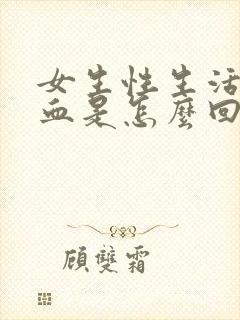 女生性生活
血是怎麼回
顧雙霜